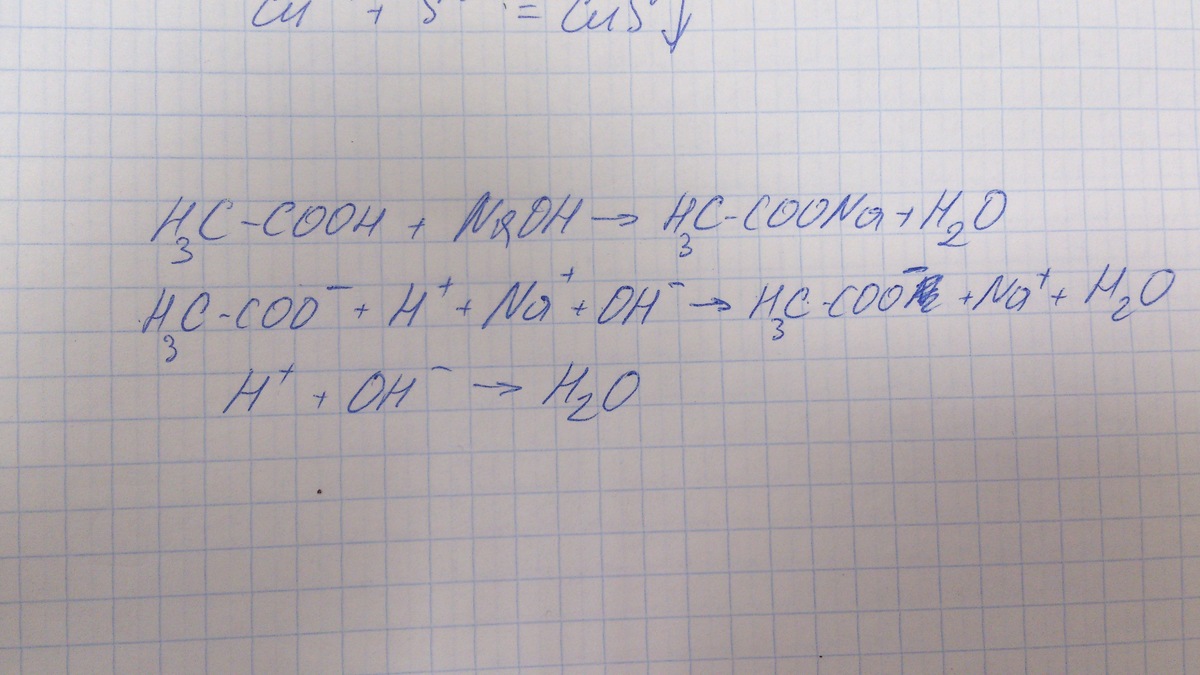 Cu + S = CuS↓
H₃C-COOH + NaOH → H₃C-COONa + H₂O
H₃C-COO⁻ + H⁺ + Na⁺ + OH⁻ → H₃C-COO⁻ + Na⁺ + H₂O
H⁺ + OH⁻ → H₂O